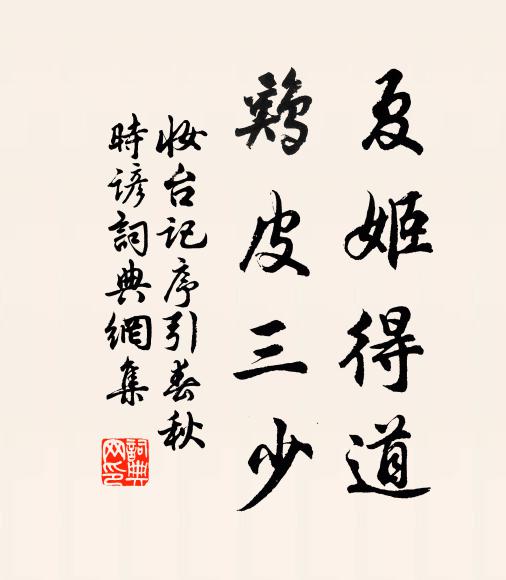 夏姬得道
鷄皮三少
妝台記序引春秋
時諺詞典網集
詞典網印